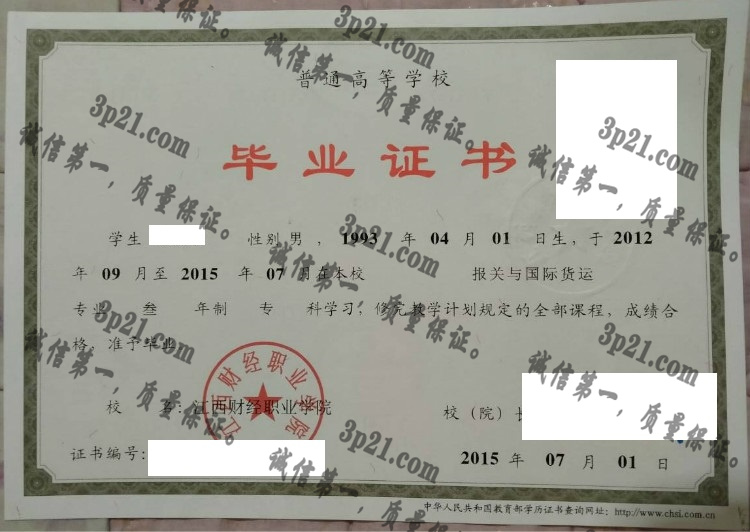 普通高等学校
毕业证书
学生 性别 男 ， 1993 年 04 月 01 日生，于 2012
年 09 月至 2015 年 07 月在本校 报关与国际货运
专业 叁 年制 专 科学习，修完教学计划规定的全部课程，成绩合
格，准予毕业
校 名：江西财经职业学院
校（院）长
证书编号：
2015 年 07 月 01 日
中华人民共和国教育部学历证书查询网址：http://www.chsi.com.cn
江西财经职业学院
3p21.com
诚信第一，质量保证。
3p21.com
诚信第一，质量保证。
3p21.com
诚信第一，质量保证。
3p21.com
诚信第一，质量保证。
3p21.com
诚信第一，质量保证。
3p21.com
诚信第一，质量保证。
3p21.com
诚信第一，质量保证。
3p21.com
诚信第一，质量保证。